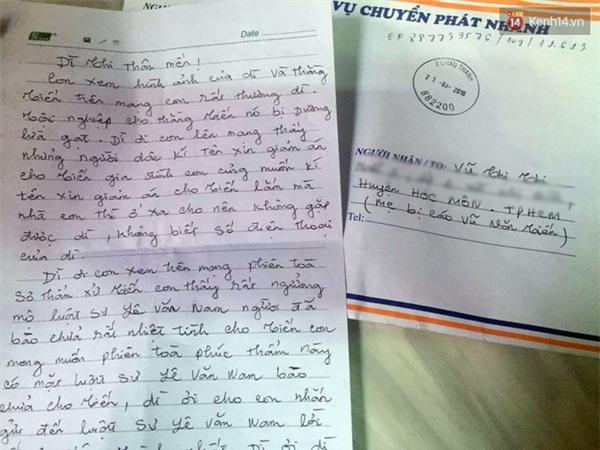 Date
Dì Thi Thân mến !
Con xem hình ảnh của dì và thằng
Tiến trên mạng con rất thương dì.
Tội nghiệp cho thằng Tiến nó bị Dương
lừa gạt. Dì ơi con lên mạng thấy
những người dân kí tên xin giảm án
cho Tiến gia đình con cũng muốn kí
tên xin giảm án cho Tiến lắm mà
nhà con thì ở xa cho nên không gặp
được dì, không biết số điện thoại
của dì.
Dì ơi con xem trên mạng phiên toà
Sơ thẩm xử Tiến con thấy rất ngưỡng
mộ luật sư Lê Văn Nam người đã
bào chữa rất nhiệt tình cho Tiến con
mong muốn phiên toà phúc thẩm này
có mặt luật sư Lê Văn Nam bào
chữa cho Tiến, dì ơi cho con nhắn
gửi đến luật sư Lê Văn Nam lời
VỤ CHUYỂN PHÁT NHANH
CHÂU THÀNH
21-03-2016
882200
NGƯỜI NHẬN/TO: Vũ Thi Thi
Huyện HOC MÔN. TPHCM
(Mẹ bị cáo Vũ Văn Tiến)
Tel:
14 Kenh14.vn